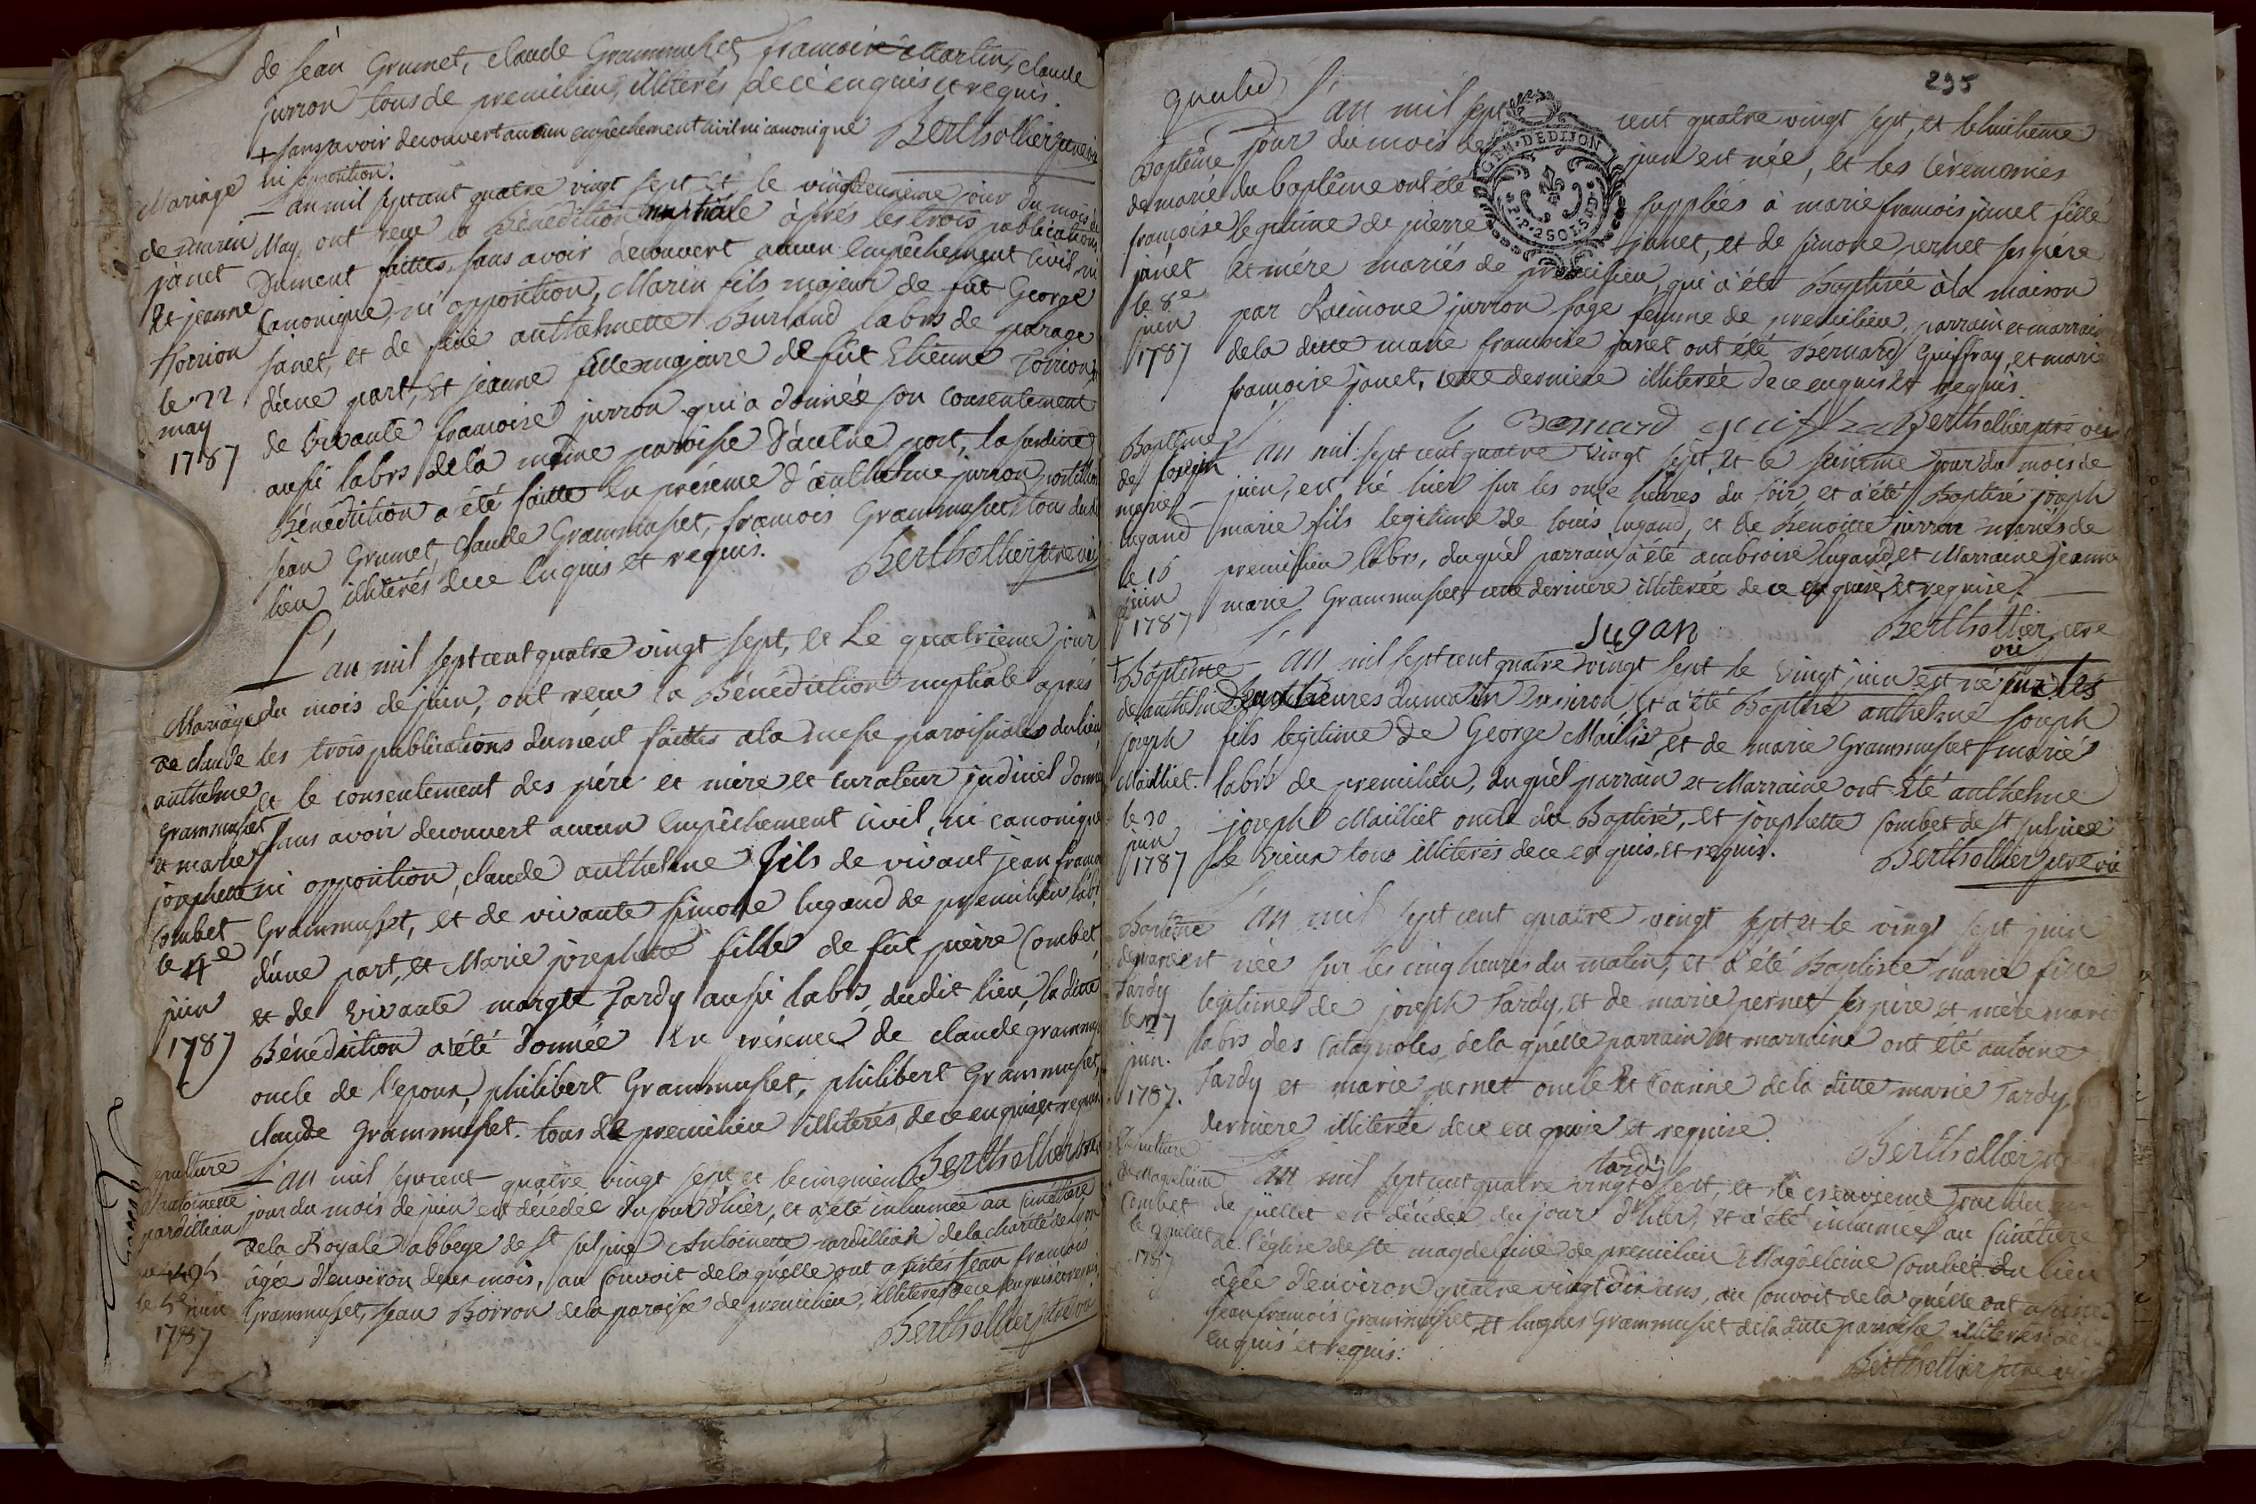 de jean Grumet, claude Grammusset, francois Martin, claude
jurron tous de premilieu, illiterés de ce enquis et requis.
+ sans avoir decouvert aucun empêchement civil ni canonique
ni opposition.
Berthollier
Mariage
de marin
janet
et jeanne
le 22
may
1787
L'an mil sept cent quatre vingt sept et le vingt deuxieme jour du mois de
May, ont reçu la Bénédiction nuptiale après les trois publications
Dument faittes, sans avoir decouvert aucun Empêchement Civil, ni
Canonique, ni opposition, Marin fils majeur de fût George
janet, et de fûe anthelmette Burland labrs de parage
d'une part, Et jeanne fille majeure de fût Etienne
de vivante francoise jurron qui a donnée son Consentement
aussi labrs de la même paroisse d'autre part, la susditte
Bénédiction a été faitte En présence d'anthelme jurron
jean Grumet, Claude Grammusset, francois Grammusset tous dudit
lieu illiterés de ce Enquis et requis.
Berthollier ptre vic
Mariage
de claude
anthelme
grammusset
et marie
josephette
Combet
le 4e
juin
1787
L'an mil sept cent quatre vingt sept, et Le quatrieme jour
du mois de juin, ont reçu la Bénédiction nuptiale apres
les trois publications dument faittes a la messe paroissiales du lieu
et le consentement des père et mère et curateur judiciel donné
sans avoir decouvert aucun Empêchement Civil, ni canonique
ni opposition, claude anthelme fils de vivant jean francois
Grammusset, et de vivante simone lugand de premilieu labrs
d'une part, et Marie josephette fille de fût pierre Combet
et de vivante margte Tardy aussi labrs dudit lieu, la ditte
Bénédiction a été donnée En présence de claude grammusset
oncle de l'epoux, philibert Grammusset, philibert Grammusset,
claude Grammusset. tous de premilieu illiterés de ce enquis et requis
Berthollier
sepulture
d'antoinette
le 5e juin
1787
L'an mil sept cent quatre vingt sept et le cinquieme
jour du mois de juin est décédée du jour d'hier, et a été inhumée au Cimétiere
de la Royale abbeÿe de St sulpice Antoinette de la charité de Lyon
âgée d'environ deux mois, au Convoit de la quelle ont assistés jean francois
Grammusset, jean Borron de la paroisse de premilieu, illiterés de ce enquis et requis
Berthollier ptre vic
295
GEN. DE DIJON
P.P. 2 SOLS 8 D
Baptême
de marie
françoise
janet
le 8e
juin
1787
L'an mil sept cent quatre vingt sept, et le huitieme
jour du mois de juin est née, et les Cérémonies
du baptême ont été supplées à marie francois janet fille
legitime de pierre janet, et de simone pernet ses père
et mére mariés de premilieu, qui à été Baptisée à la maison
par Raimone jurron sage femme de premilieu, parrain et marraine
de la ditte marie francoise janet ont été Bernard Guiffray, et marie
francoise janet, cette derniere illiterée de ce enquis et requis.
Bernard
Berthollier ptre vic
Baptême
de joseph
marie
lugand
le 16
juin
1787
L'an mil sept cent quatre vingt sept, et le seizieme jour du mois de
juin, est né hier sur les onze heures du soir, et a été Baptisé joseph
marie fils legitime de louis lugand, et de Benoitte jurron mariés de
premilieu labrs, duquel parrain à été ambroise lugand, et Marraine jeanne
marie Grammusset, cette derniere illiterée de ce enquise, et requise.
lugan
Berthollier ptre
vic
+ Baptême
de anthelme
joseph
Mailliet.
le 20
juin
1787
L'an mil sept cent quatre vingt sept le vingt juin est né sur les
heures du matin environ, et a été Baptisé anthelme joseph
fils legitime de George Mailliet, et de marie Grammusset mariés
labrs de premilieu, duquel parrain et Marraine ont été anthelme
joseph Mailliet oncle du Baptisé, et josephette Combet de St sulpice
le vieux tous illiteres de ce enquis, et requis.
Berthollier ptre vic
Baptême
de marie
Tardy
le 27
juin.
1787.
L'an mil sept cent quatre vingt sept et le vingt sept juin
est née sur les cinq heures du matin, et a été Baptisée marie fille
legitime de joseph Tardy, et de marie pernet ses père et mère mariés
labrs des Catagnoles, de la quelle parrain et marraine ont été antoine
Tardy et marie pernet oncle et Cousine de la ditte marie Tardy,
derniere illiterée de ce enquise et requise.
tardy
Berthollier
Sepulture
de Magdeleine
Combet
juillet
1787
L'an mil sept cent quatre vingt sept, et le jour du
de juillet est décédée du jour d'hier, et a été inhumée au Cimétiere
de l'église de Ste magdeleine de premilieu Magdeleine Combet du lieu
âgée d'environ quatre vingt dix ans, au Convoit de la quelle ont assistés
jean francois Grammusset, et hugues Grammusset de la ditte paroisse illiterés de ce
enquis et requis.
Berthollier ptre vic